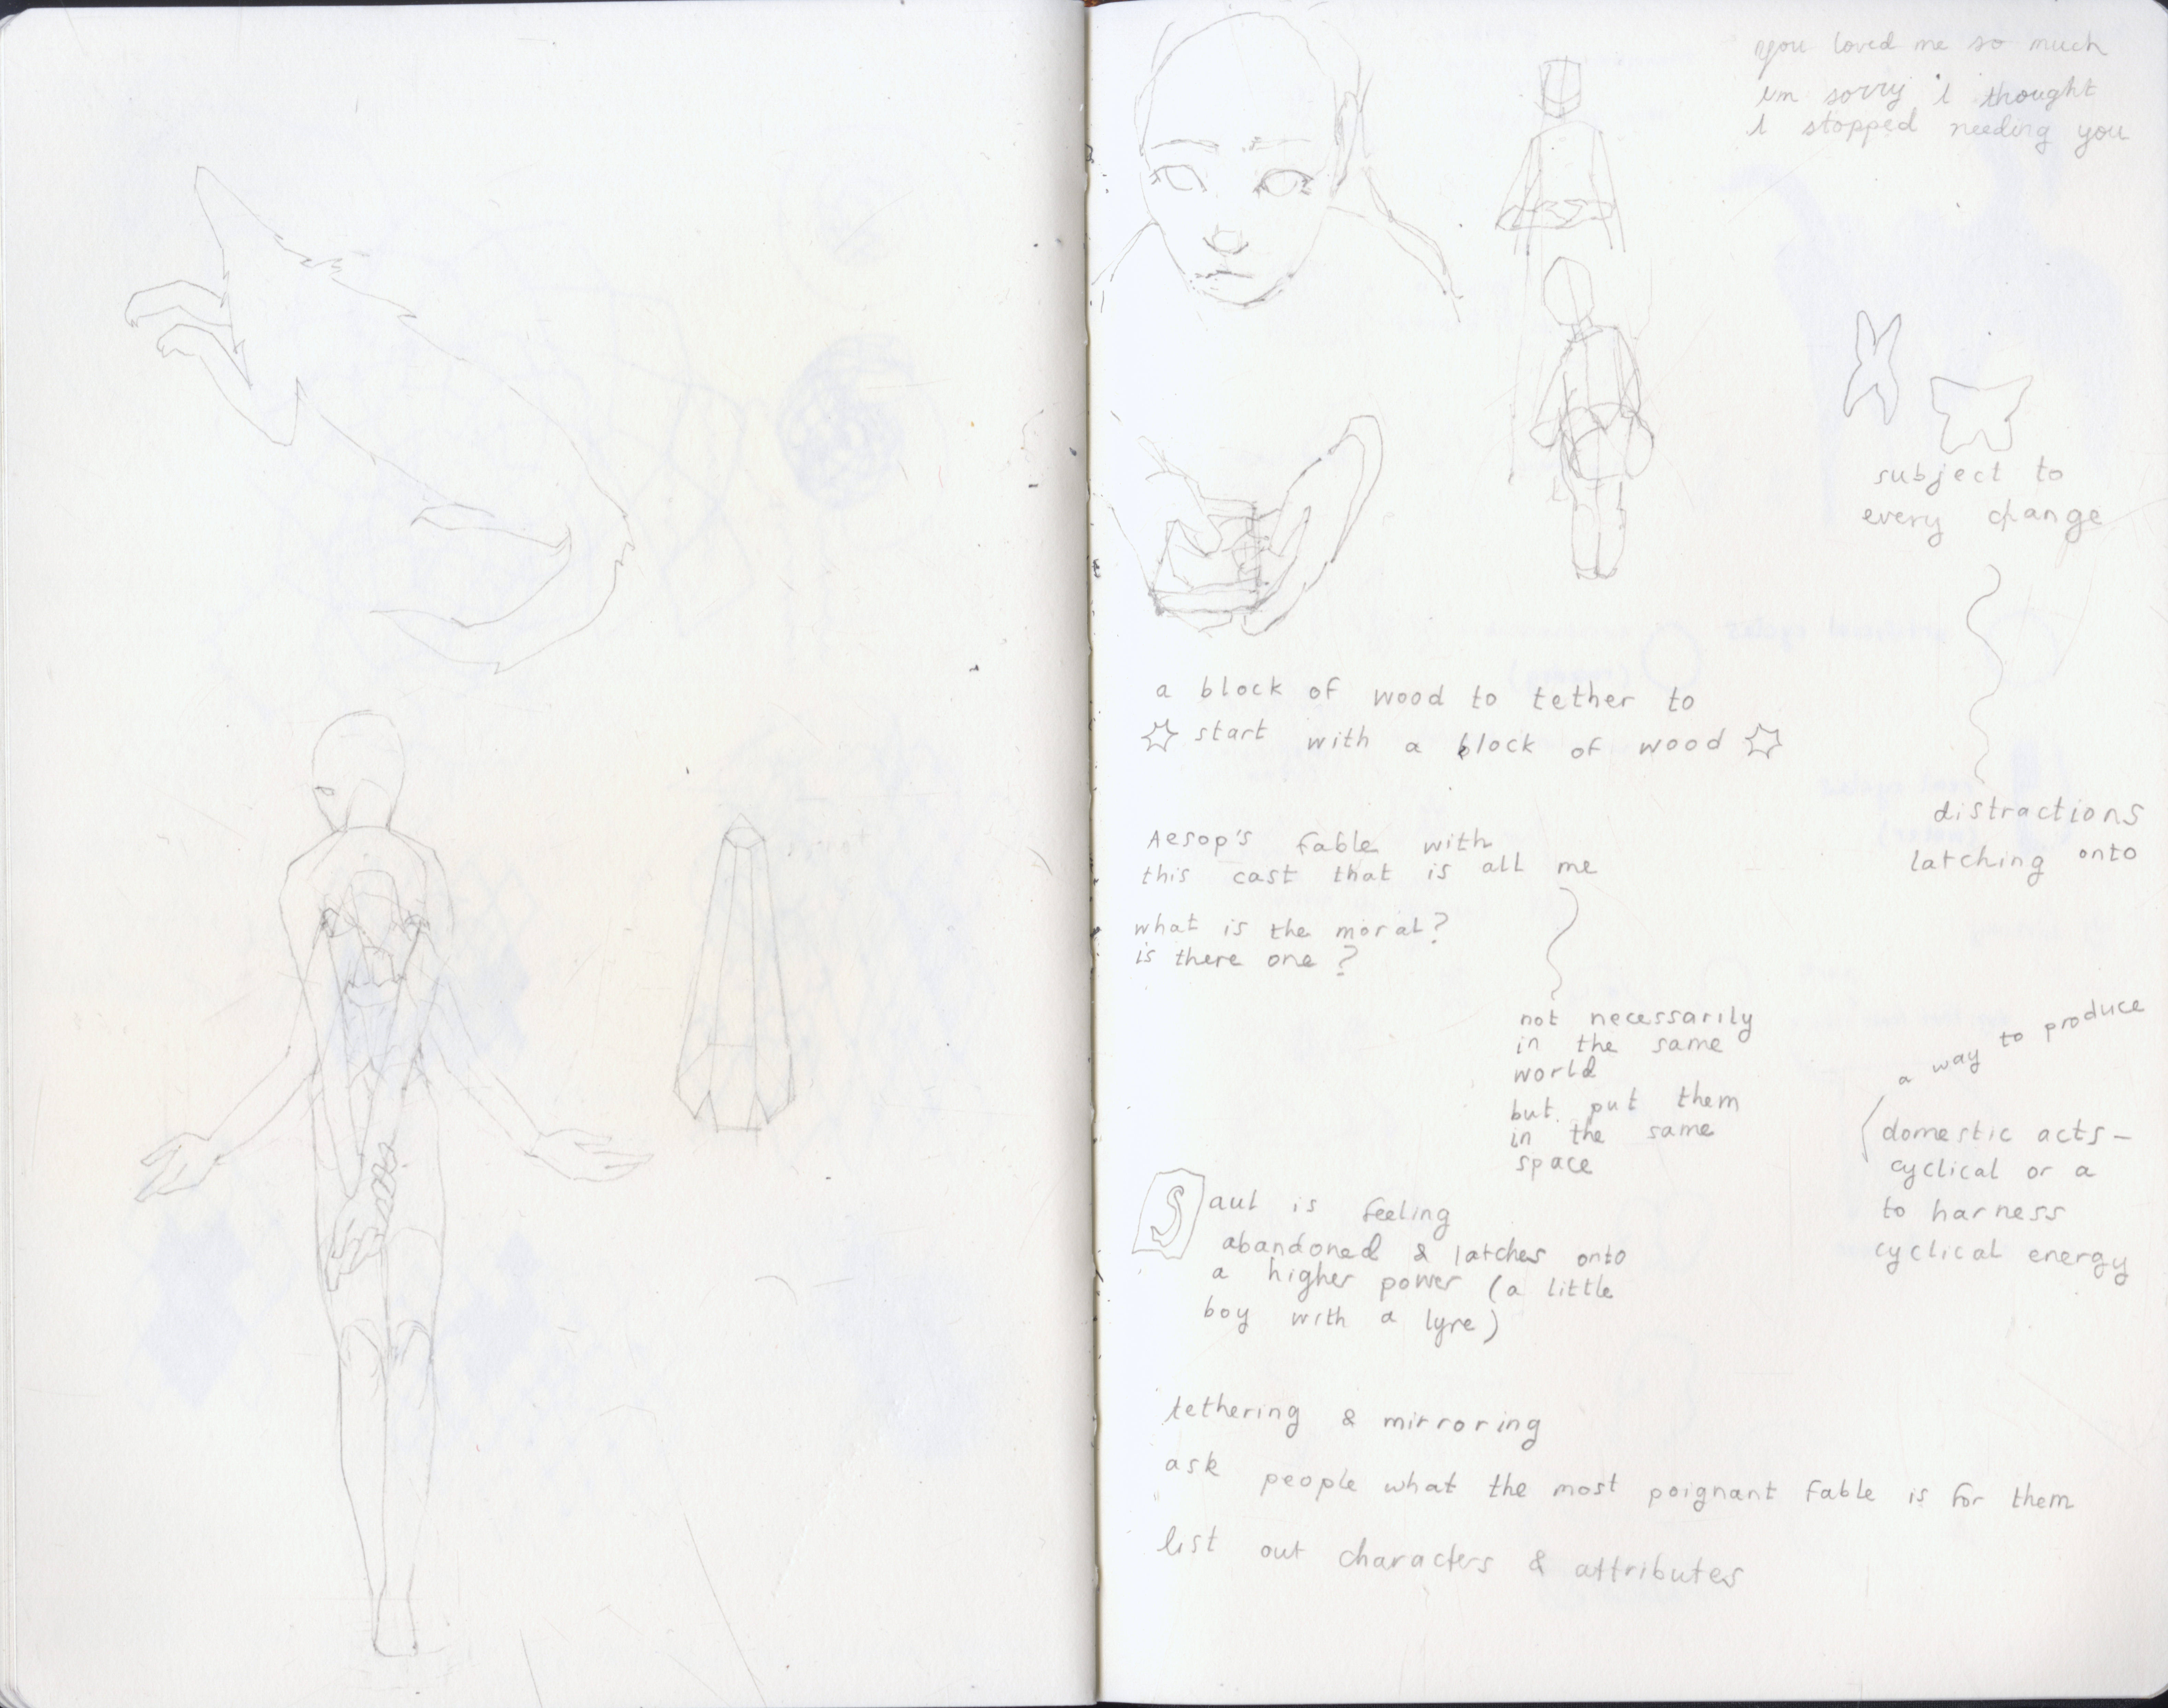 you loved me so much
im sorry i thought
i stopped needing you
subject to
every change
a block of wood to tether to
start with a block of wood
distractions
latching onto
Aesop's fable with
this cast that is all me
what is the moral?
is there one?
not necessarily
in the same
world
but put them
in the same
space
a way to produce
domestic acts-
cyclical or a
to harness
cyclical energy
Saul is feeling
abandoned & latches onto
a higher power (a little
boy with a lyre)
tethering & mirroring
ask people what the most poignant fable is for them
list out characters & attributes